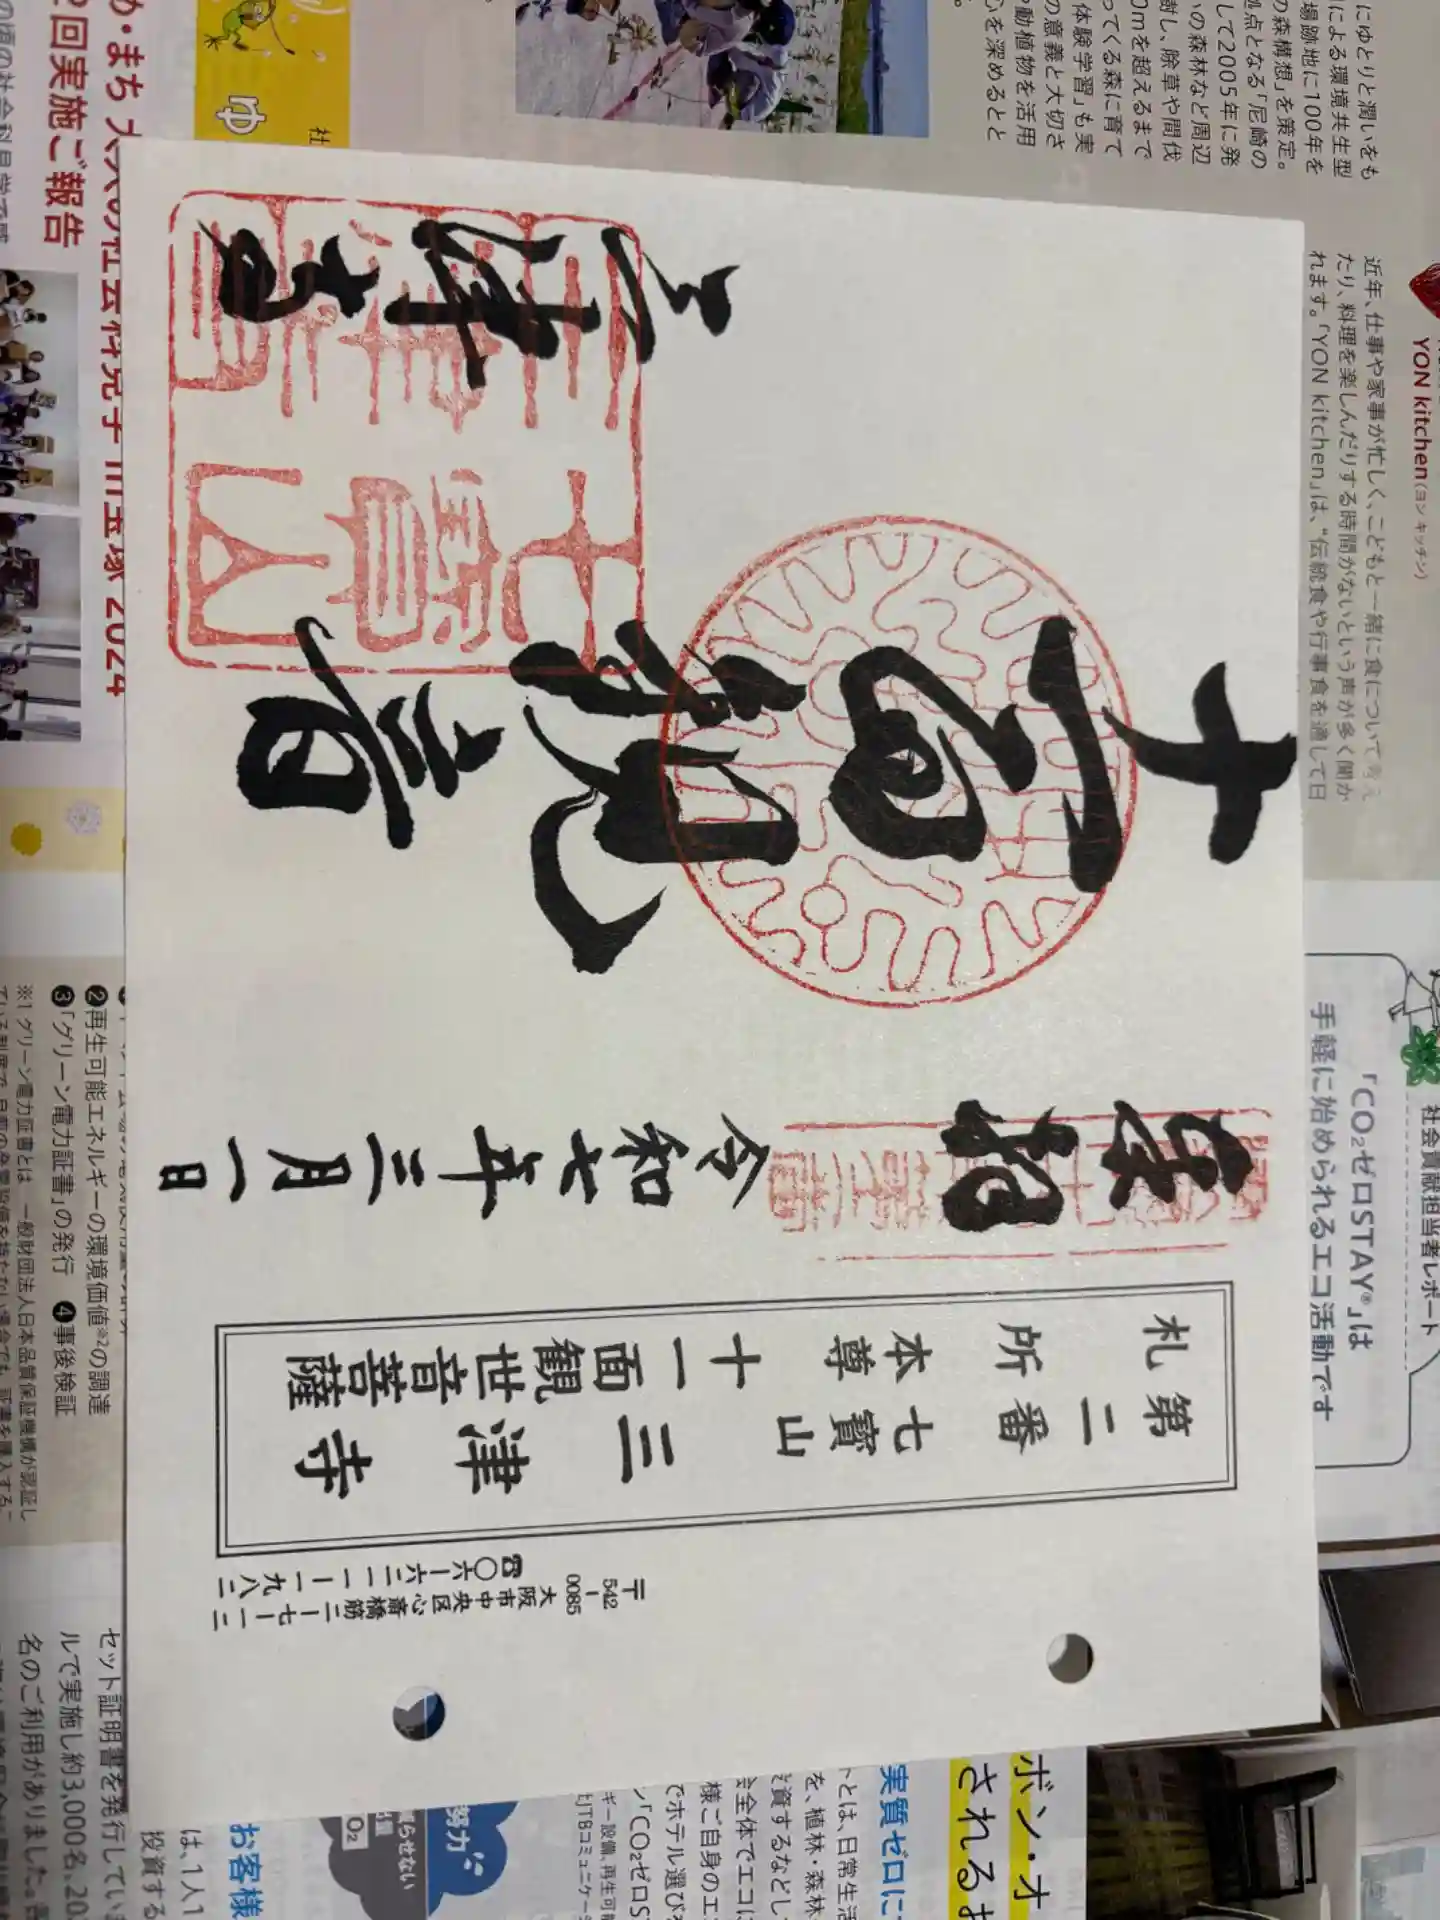 奉拝
令和七年三月一日
十一面
観音
三津寺
七寶山
三津寺
札所
第二番
本尊
七寶山
十一面観世音菩薩
三津寺
〒542-0085
大阪市中央区心斎橋筋二-七-一二
☎〇六-六二一一-一九八二
にゆとりと潤いをも
による環境共生型
場跡地に100年を
の森構想」を策定。
拠点となる「尼崎の
して2005年に発
の森林など周辺
樹し、除草や間伐
0mを超えるまで
ってくる森に育て
体験学習」も実
の意義と大切さ
動植物を活用
心を深めるとと
YON kitchen(ヨン キッチン)
近年、仕事や家事が忙しく、こどもと一緒に食について考え
たり、料理を楽しんだりする時間がないという声が多く聞か
れます。「YON kitchen」は、“伝統食や行事食を通して日
社会貢献担当者レポート
「CO₂ゼロSTAY®」は
手軽に始められるエコ活動です
め・まち
2回実施ご報告
2024
ゆ
社
❷再生可能エネルギーの環境価値※2の調達
❸「グリーン電力証書」の発行 ❹事後検証
※1 グリーン電力証書とは、一般財団法人日本品質保証機構が認証し
セット証明書を発行してい
ルで実施し約3,000名、20
名のご利用がありました。
お客様
は、1人1
投資する
努力
らせない
ボン・オ
される
実質ゼロに
トとは、日常生活
を、植林・森林
資するなどし
会全体でエコに
様ご自身のエ
でホテル選び
ン「CO₂ゼロS
ギー設備、再生可能
JTBコミュニケー